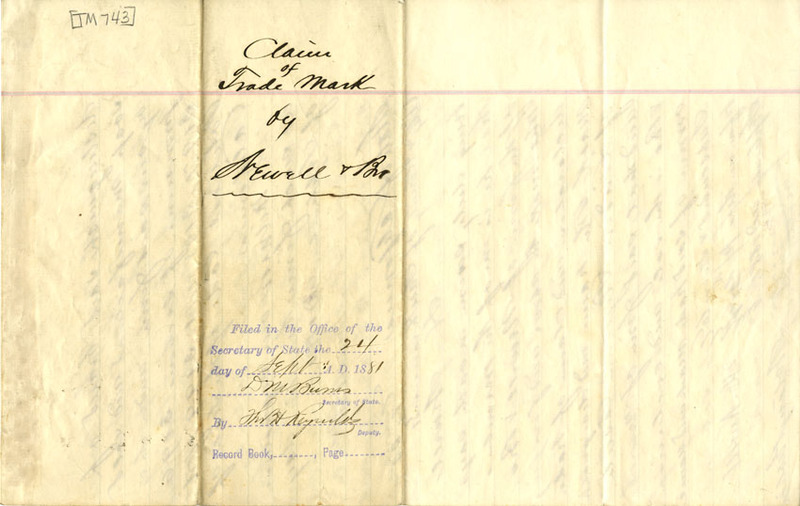 [TM 743]
Claim
of
Trade Mark
by
Newell & Bro
Filed in the Office of the
Secretary of State the 24
day of Sept A. D. 1881
D M Burns
Secretary of State.
By Thos H Reynolds
Deputy.
Record Book, ........, Page ........